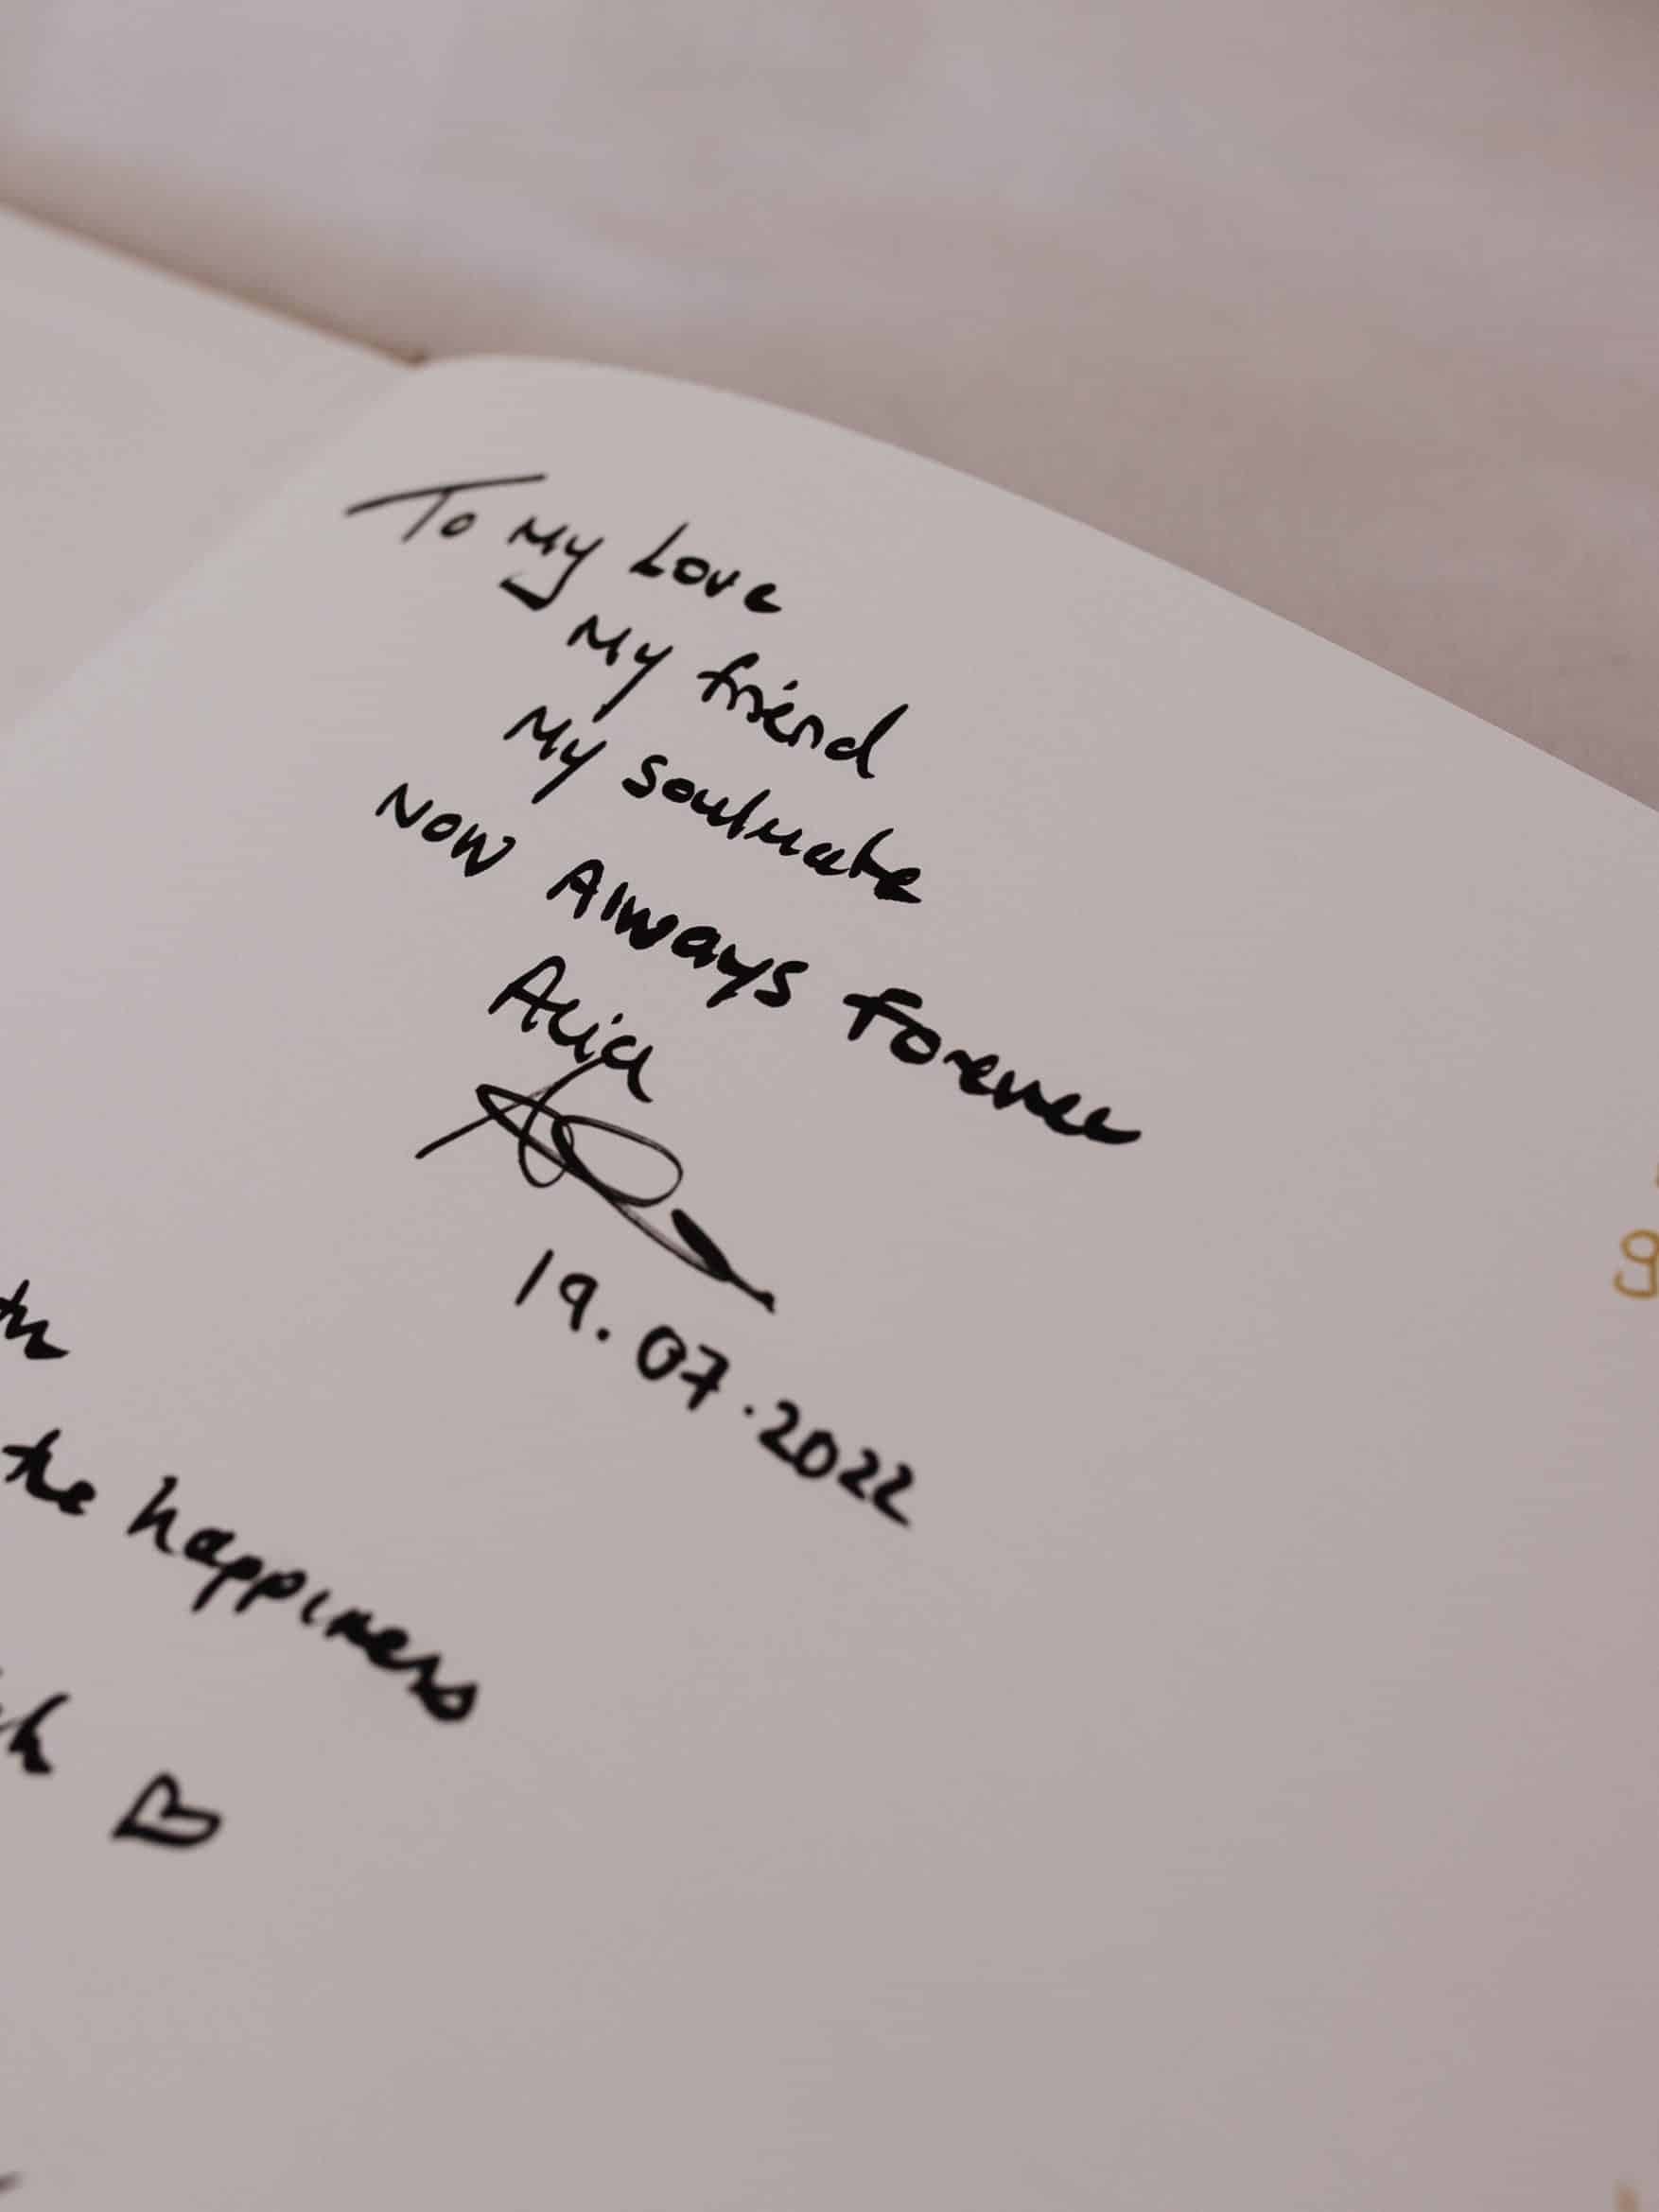 To My Love
My friend
My soulmate
NOW Always Forever
Alia
19.07.2022
the happiness